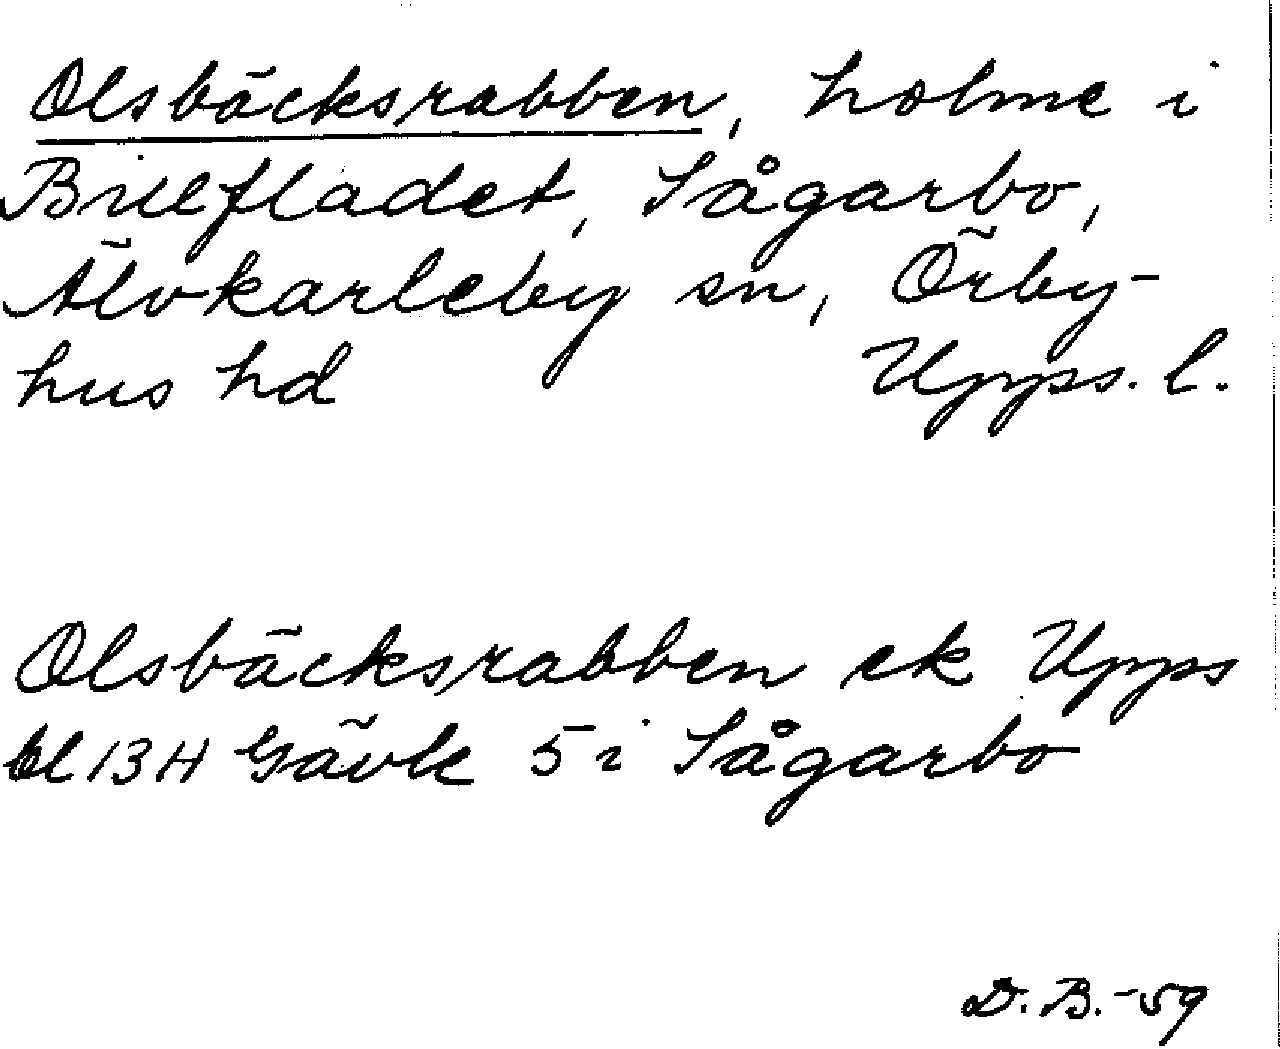 Olsbäcksrabben, holme i
Brilefladet, Sågarbo,
Älvkarleby sn, Örby-
hus hd Upps. l.
Olsbäcksrabben ek Upps
bl 13H Gävle 5 i Sågarbo
D.B.-59